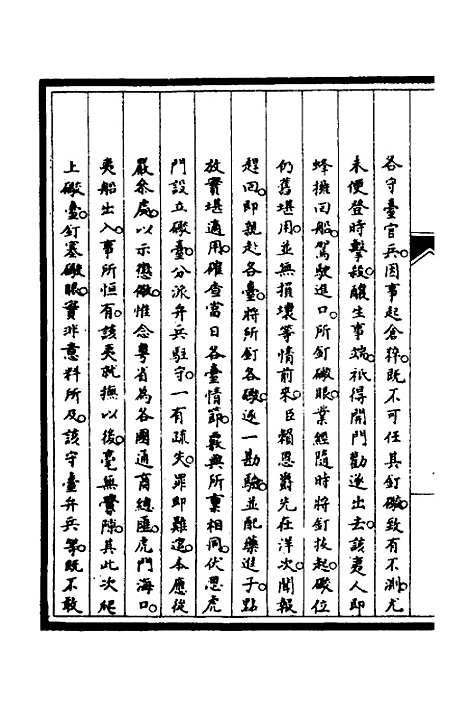 各守臺官兵因事起倉猝既不可任其釘礮致有不測尤
未便登時擊殺釀生事端祇得開門勸逐出去該夷人即
蜂擁回船駕駛進口所釘礮眼業經隨時將釘拔起礮位
仍舊堪用並無損壞等情前來臣賴恩爵先在洋次聞報
趕回即親赴各臺將所釘各礮逐一勘驗並配藥進子點
放實堪適用確查當日各臺情節覈與所稟相同伏思虎
門設立礮臺分派弁兵駐守一有疏失罪即難逭本應從
嚴參處以示懲儆惟念粵省為各國通商總匯虎門海口
夷船出入事所恒有該夷就撫以後毫無釁隙其此次爬
上礮臺釘塞礮眼實非意料所及該守臺弁兵等既不敢